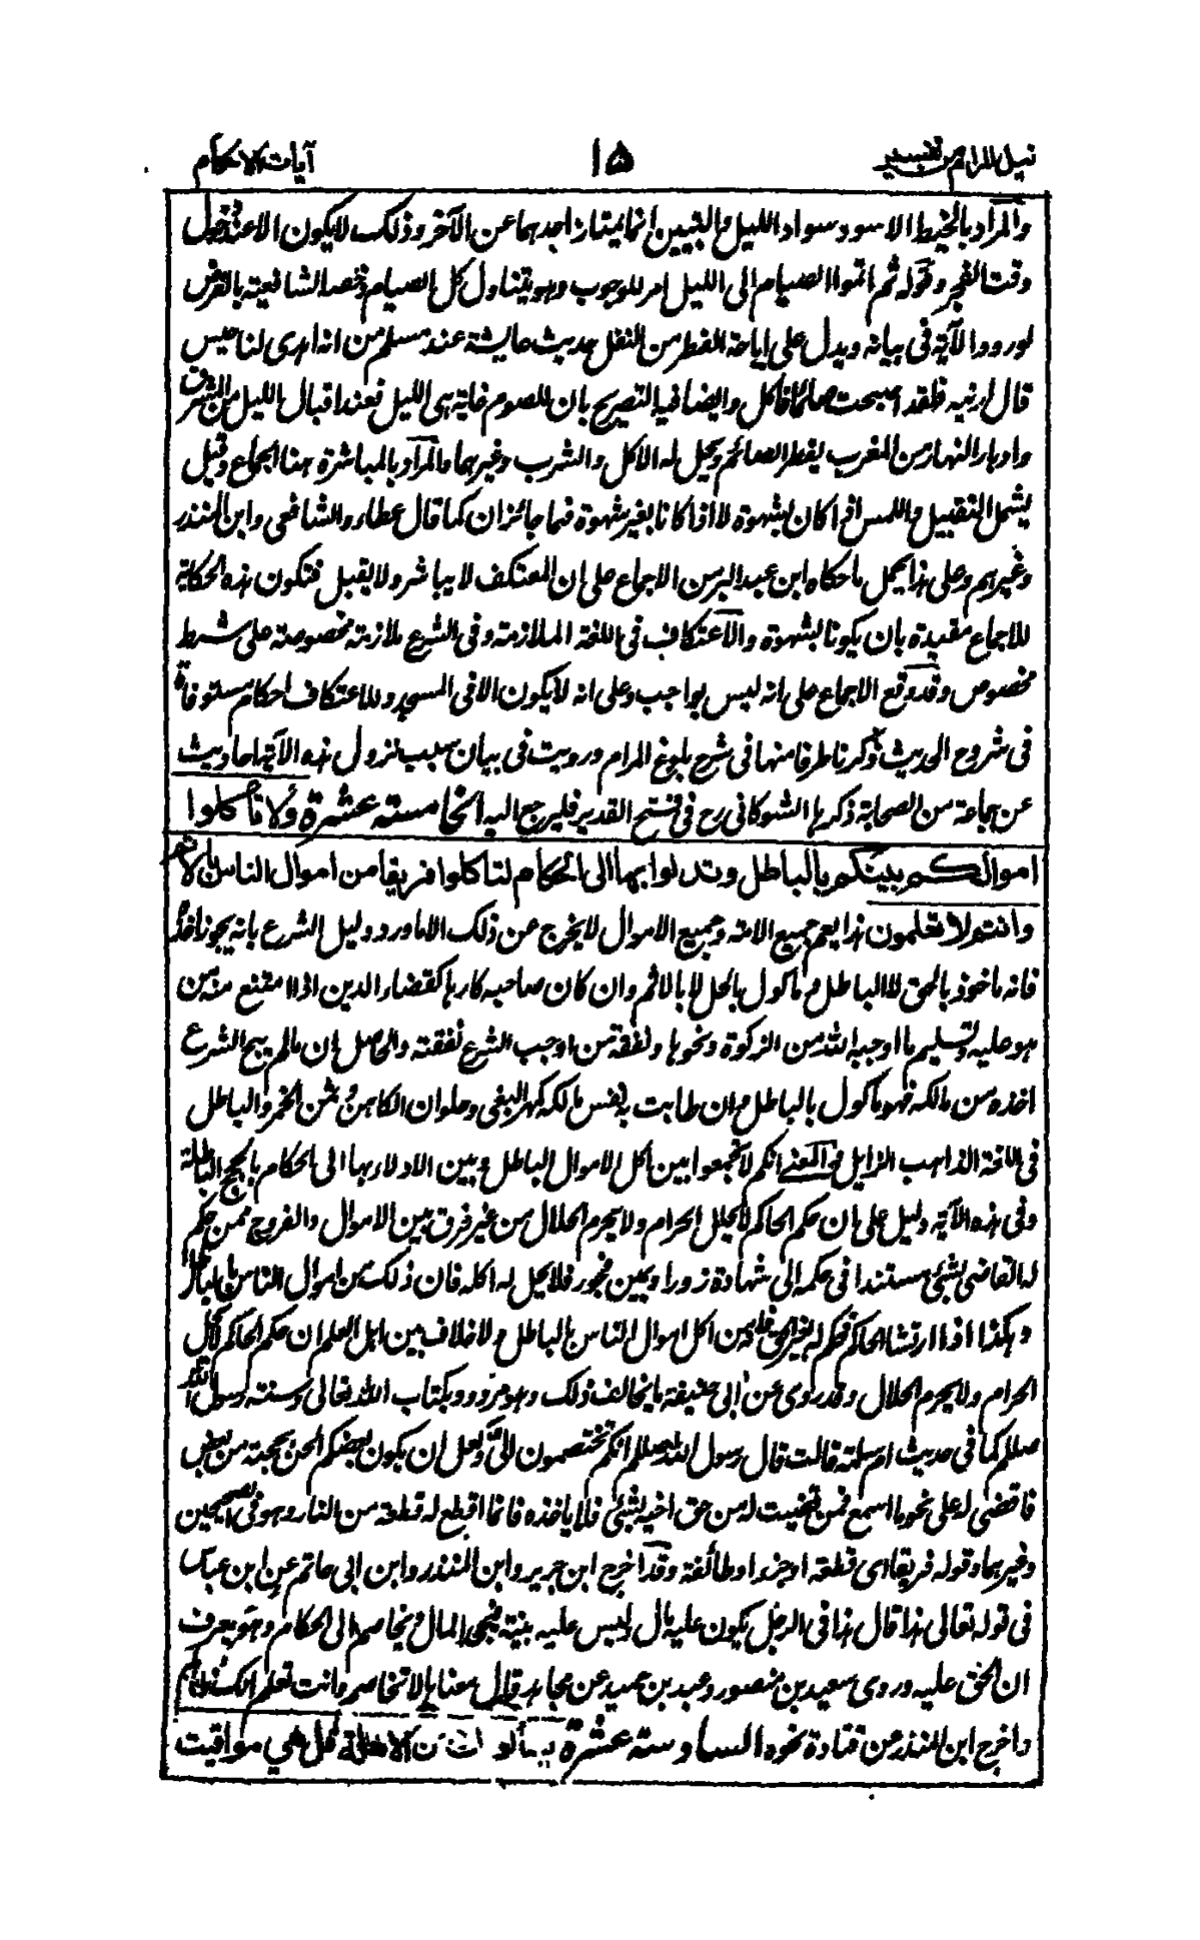 نيل المرام من تفسير
١٥
آيات الاحكام
والمراد بالخيط الاسود سواد الليل والتبيين انما يمتاز احدهما عن الآخر وذلك لا يكون الا عند دخول
وقت الفجر وقوله ثم اتموا الصيام الى الليل امر للوجوب وهو يتناول كل الصيام وخصه الشافعية بالفرض
لورود الآية فى بيانه ويدل على اباحة الفطر من النفل حديث عايشة عند مسلم من انه اهدى لنا حيس
قال ارنيه فلقد اصبحت صائما فاكل وايضا فيها التصريح بان للصوم غاية هى الليل فعند اقبال الليل من المشرق
وادبار النهار من المغرب يفطر الصائم ويحل له الاكل والشرب وغيرهما والمراد بالمباشرة هنا الجماع وقيل
يشمل التقبيل واللمس اذا كان لشهوة لا اذا كانا بغير شهوة فهما جائزان كما قال عطاء والشافعى وابن المنذر
وغيرهم وعلى هذا يحمل ما حكاه ابن عبد البر من الاجماع على ان المعتكف لا يباشر ولا يقبل فتكون هذه الحكاية
للاجماع مقيدة بان يكونا لشهوة والاعتكاف فى اللغة الملازمة وفى الشرع ملازمة مخصوصة على شرط
مخصوص وقد وقع الاجماع على انه ليس بواجب وعلى انه لا يكون الا فى المسجد وللاعتكاف احكام مستوفاة
فى شروح الحديث ذكرنا طرفا منها فى شرح بلوغ المرام ورويت فى بيان سبب نزول هذه الآية احاديث
عن جماعة من الصحابة ذكرها الشوكانى رح فى فتح القدير فليرجع اليه الخامسة عشرة ولا تأكلوا
اموالكم بينكم بالباطل وتدلوا بها الى الحكام لتاكلوا فريقا من اموال الناس بالاثم
وانتم لا تعلمون هذا يعم جميع الامة وجميع الاموال لا يخرج عن ذلك الا ما ورد دليل الشرع بانه يجوز اخذه
فانه ماخوذ بالحق لا بالباطل و ماكول بالحل لا بالاثم وان كان صاحبه كارها كقضاء الدين اذا امتنع منه من
هو عليه وتسليم ما اوجبه الله من الزكوة ونحوها ونفقة من اوجب الشرع نفقته والحاصل ان مالم يبح الشرع
اخذه من مالكه فهو ماكول بالباطل وان طابت به نفس مالكه كمهر البغى وحلوان الكاهن وثمن الخمر والباطل
فى اللغة الذاهب الزايل والمعنى انكم لا تجمعوا بين اكل الاموال الباطل وبين الادلاء بها الى الحكام بالحجج الباطلة
وفى هذه الآية دليل على ان حكم الحاكم لا يحلل الحرام ولا يحرم الحلال من غير فرق بين الاموال والفروج فمن حكم
له القاضى بشئ مستندا فى حكمه الى شهادة زور او يمين فجور فلا يحل له اكله فان ذلك من اموال الناس بالباطل
وهكذا اذا ارتشا الحاكم فحكم له بغير الحق فانه من اكل اموال الناس بالباطل ولا خلاف بين اهل العلم ان حكم الحاكم لا يحل
الحرام ولا يحرم الحلال وقد روى عن ابى حنيفة ما يخالف ذلك وهو مردود بكتاب الله تعالى وسنة رسول الله
صللم كما فى حديث ام سلمة قالت قال رسول الله صللم انكم تختصمون الىّ ولعل ان يكون بعضكم الحن بحجته من بعض
فاقضى له على نحو ما اسمع فمن قضيت له من حق اخيه بشئ فلا ياخذه فانما اقطع له قطعة من النار وهو فى الصحيحين
وغيرهما وقوله فريقا اى قطعة او جزءا وطائفة وقد اخرج ابن جرير وابن المنذر وابن ابى حاتم عن ابن عباس
فى قوله تعالى هذا قال هذا فى الرجل يكون عليه مال وليس عليه بينة فيجحد المال ويخاصم الى الحكام وهو يعرف
ان الحق عليه وروى سعيد بن منصور وعبد بن حميد عن مجاهد قال معناها لا تخاصم وانت تعلم انك ظالم
واخرج ابن المنذر عن قتادة نحوه السادسة عشرة يسألونك عن الاهلة قل هي مواقيت